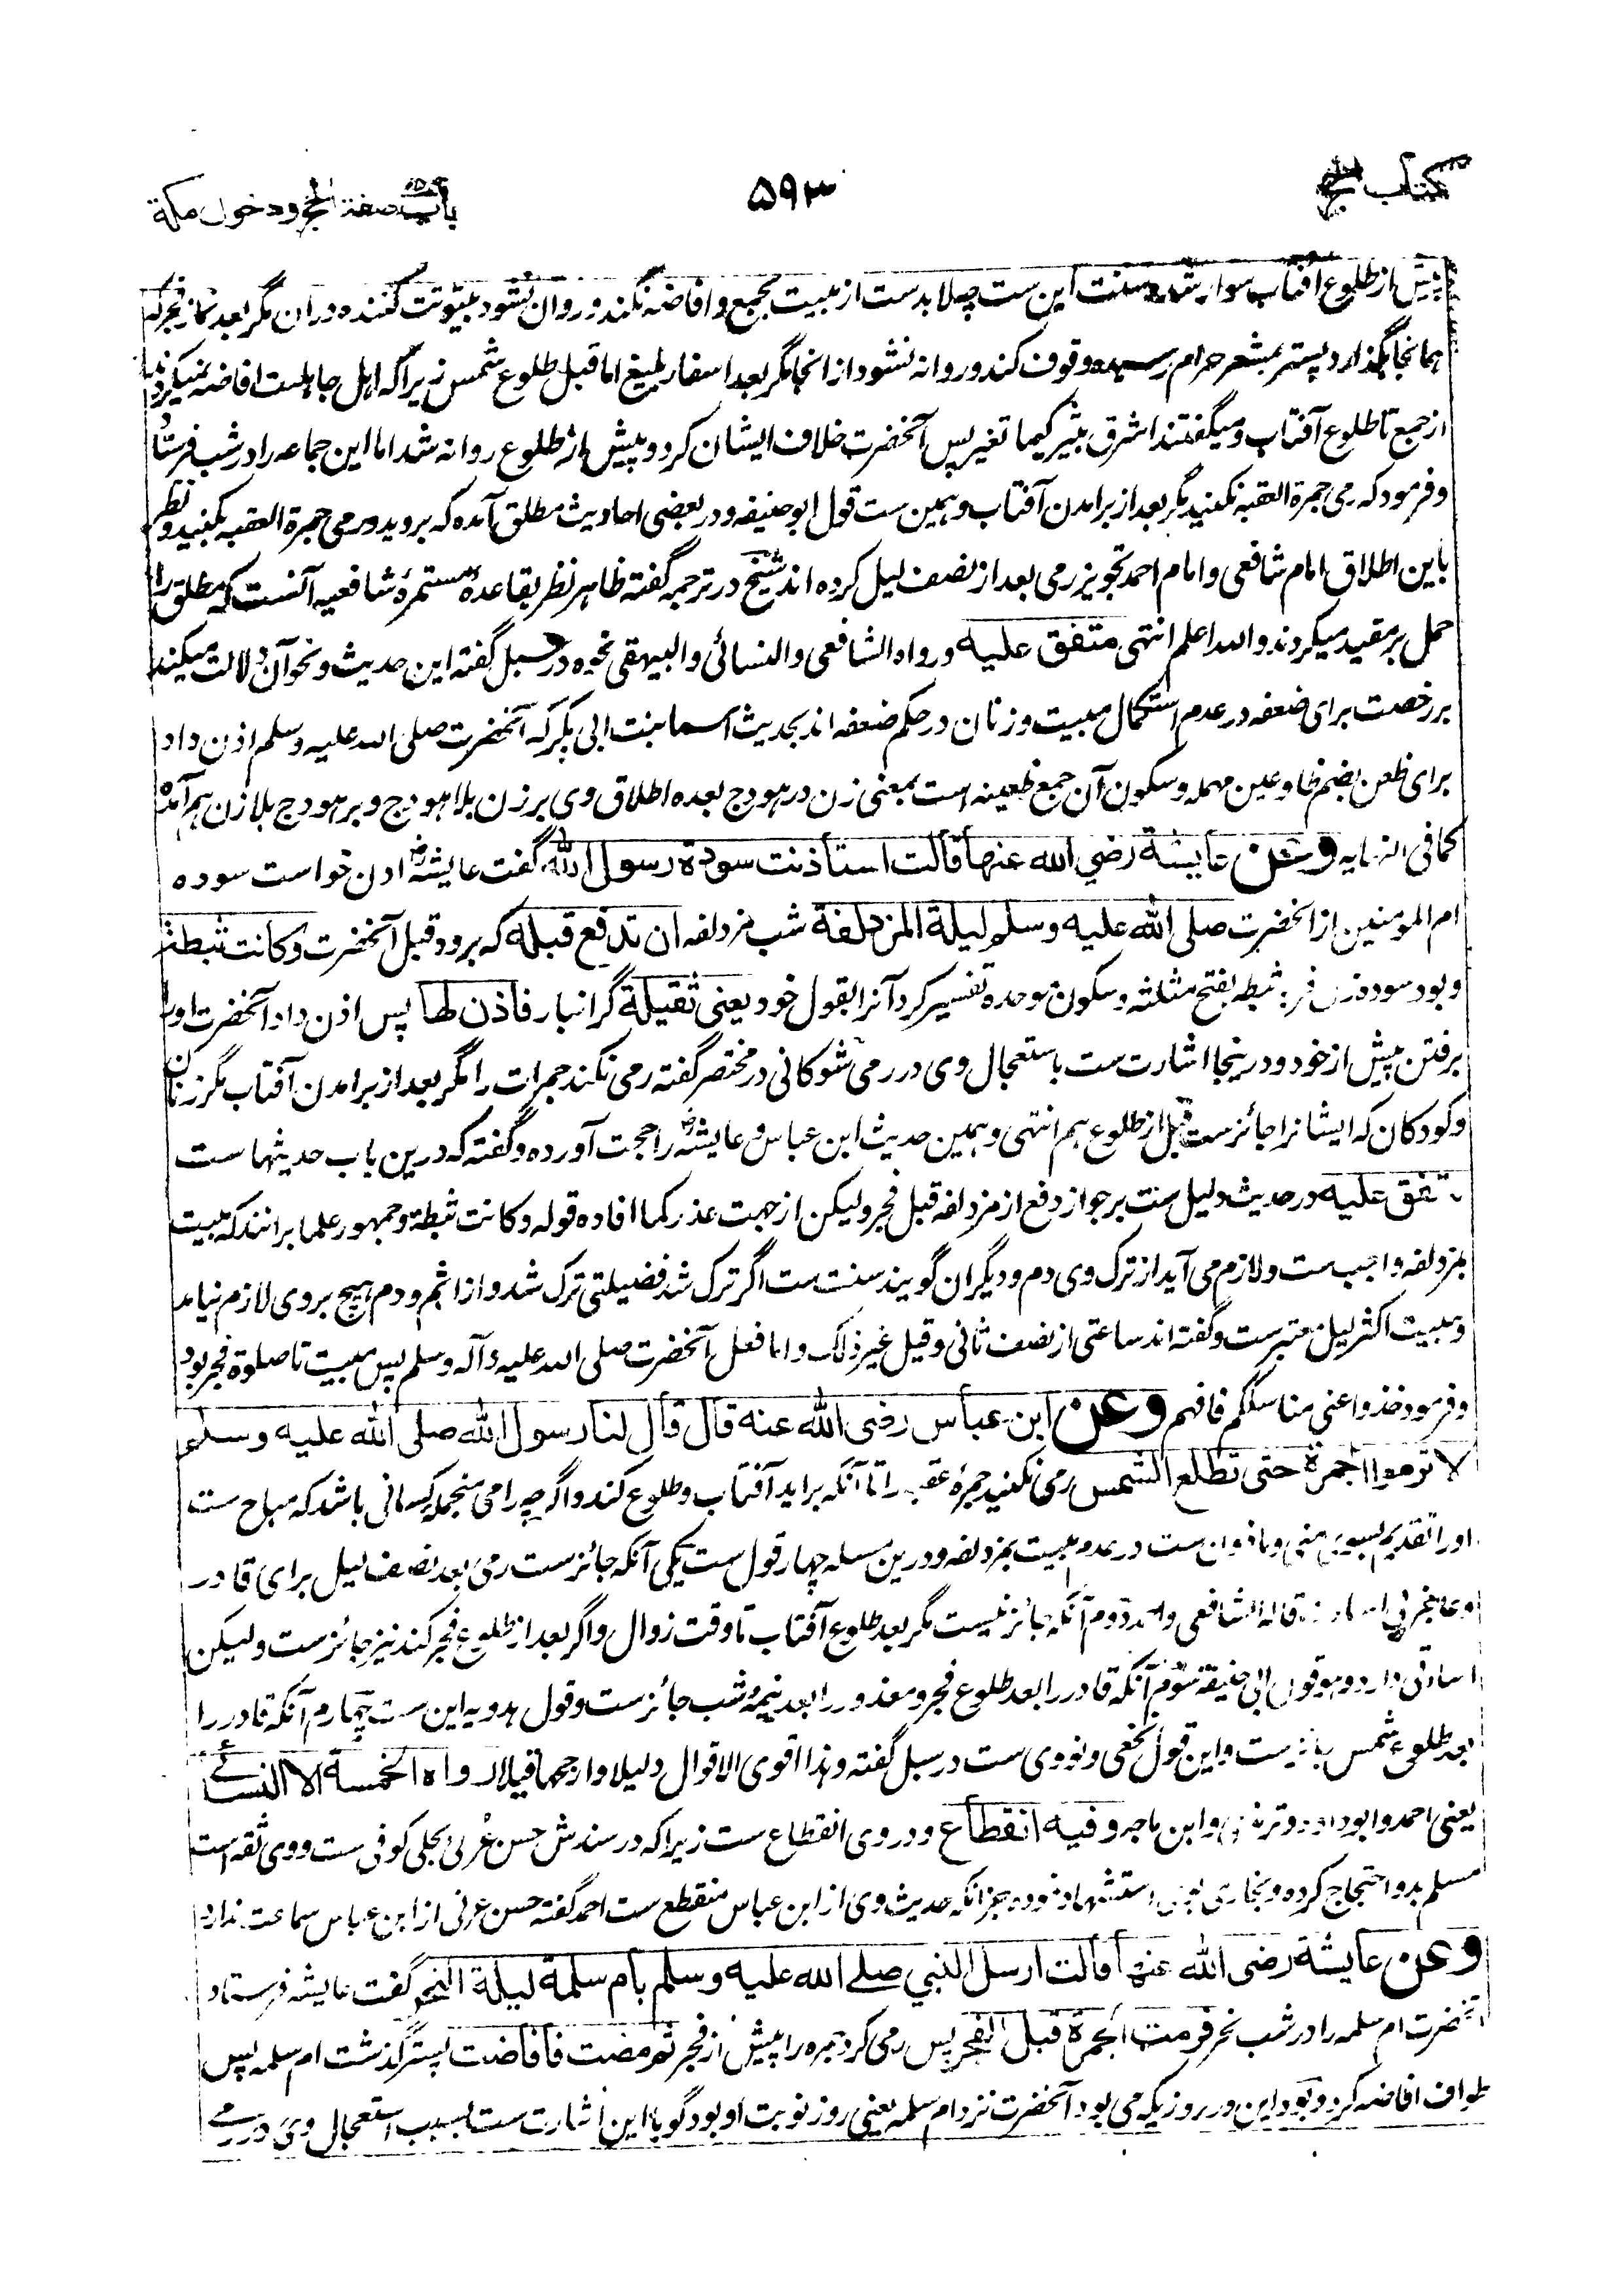 کتاب الحج
۵۹۳
باب صفة الحج ودخول مکة
پیش از طلوع آفتاب سوار شد وسنت این ست چه لابدست از مبیت بجمع وافاضه نکند وروان نشود بیتوتت کننده دران مگر بعد نماز فجر که
همانجا بگذارد پستر بمشعر حرام رسیده وقوف کند وروانه نشود از انجا مگر بعد اسفار بلیغ اما قبل طلوع شمس زیرا که اهل جاهلیت افاضه نمیکردند
از جمع تا طلوع آفتاب ومیگفتند اشرق ثبیر کیما نغیر پس آنحضرت خلاف ایشان کرد وپیش از طلوع روانه شد اما این جماعه را در شب فرستاد
وفرمود که رمی جمرة العقبه نکنید مگر بعد از برامدن آفتاب وهمین ست قول ابوحنیفه ودر بعضی احادیث مطلق آمده که بروید ورمی جمرة العقبه بکنید ونظر
باین اطلاق امام شافعی وامام احمد تجویز رمی بعد از نصف لیل کرده اند شیخ در ترجمه گفته ظاهر نظر بقاعدهٔ مستمرهٔ شافعیه آنست که مطلق را
حمل بر مقید میکردند والله اعلم انتهی متفق علیه ورواه الشافعی والنسائی والبیهقی نحوه در سبل گفته این حدیث ونحو آن دلالت میکند
بر رخصت برای ضعفه در عدم استکمال مبیت وزنان در حکم ضعفه اند بحدیث اسما بنت ابی بکر که آنحضرت صلی الله علیه وسلم اذن داد
برای ظعن بضم ظا وعین مهمله وسکون آن جمع ظعینه است بمعنی زن در هودج بعده اطلاق وی بر زن بلا هودج وبر هودج بلا زن هم آمده
کما فی النهایه وعن عایشة رضی الله عنها قالت استأذنت سودة رسول الله گفت عایشه رض اذن خواست سوده
ام المومنین از انحضرت صلی الله علیه وسلم لیلة المزدلفة شب مزدلفه ان تدفع قبله که برود قبل آنحضرت وکانت ثبطة
وبود سوده زن فربه ثبطه بفتح مثلثه وسکون موحده تفسیر کرد آنرا بقول خود یعنی ثقیلة گرانبار فاذن لها پس اذن داد آنحضرت او را
برفتن پیش از خود ودرینجا اشارت ست باستعجال وی در رمی شوکانی در مختصر گفته رمی نکند جمرات را مگر بعد از برامدن آفتاب مگر زنان
وکودکان که ایشانرا جائزست قبل از طلوع هم انتهی وهمین حدیث ابن عباس وعایشه رض را حجت آورده وگفته که درین باب حدیثها ست
متفق علیه ودر حدیث دلیل ست بر جواز دفع از مزدلفه قبل فجر ولیکن از جهت عذر کما افاده قوله وکانت ثبطة وجمهور علما برانند که مبیت
بمزدلفه واجب ست ولازم می آید از ترک وی دم ودیگران گویند سنت ست اگر ترک شد فضیلتی ترک شد واز اثم ودم هیچ بروی لازم نیاید
ومبیت اکثر لیل معتبرست وگفته اند ساعتی از نصف ثانی وقیل غیر ذلک واما فعل آنحضرت صلی الله علیه وآله وسلم پس مبیت تا صلوة فجر بود
وفرمود خذوا عنی مناسککم فافهم وعن ابن عباس رضی الله عنه قال قال لنا رسول الله صلی الله علیه وسلم
لا ترموا الجمرة حتی تطلع الشمس رمی نکنید جمرهٔ عقبه را تا آنکه براید آفتاب وطلوع کند واگرچه رامی منجمله کسانی باشد که مباح ست
او را تقدیم بسوی منی وماذون ست در عدم مبیت بمزدلفه ودرین مسئله چهار قول ست یکی آنکه جائزست رمی بعد نصف لیل برای قادر
وعاجز قاله الشافعی واحمد دوم آنکه جائز نیست مگر بعد طلوع آفتاب تا وقت زوال واگر بعد از طلوع فجر کند نیز جائزست ولیکن
اسائتی دارد وهو قول ابی حنیفة سوم آنکه قادر را بعد طلوع فجر ومعذور را بعد نیمهٔ شب جائزست وقول هدویه این ست چهارم آنکه قادر را
بعد طلوع شمس جائز ست واین قول نخعی وثوری ست در سبل گفته وهذا اقوی الاقوال دلیلا وارجحها قیلا رواه الخمسة الا النسائے
یعنی احمد وابوداود وترمذی وابن ماجه وفیه انقطاع ودر وی انقطاع ست زیرا که در سندش حسن عرنی بجلی کوفی ست ووی ثقه است
مسلم بدو احتجاج کرده وبخاری بوی استشهاد نموده بجز آنکه حدیث وی از ابن عباس منقطع ست احمد گفته حسن عرنی از ابن عباس سماعت ندارد
وعن عایشة رضی الله عنها قالت ارسل النبی صلے الله علیه وسلم بام سلمة لیلة النحر گفت عایشه فرستاد
آنحضرت ام سلمه را در شب نحر فرمت الجمرة قبل الفجر پس رمی کرد جمره را پیش از فجر ثم مضت فافاضت پستر گذشت ام سلمه پس
طواف افاضه کرد وبود این در روزیکه می بود آنحضرت نزد ام سلمه یعنی روز نوبت او بود گویا این اشارت ست بسبب استعجال وی در رمے